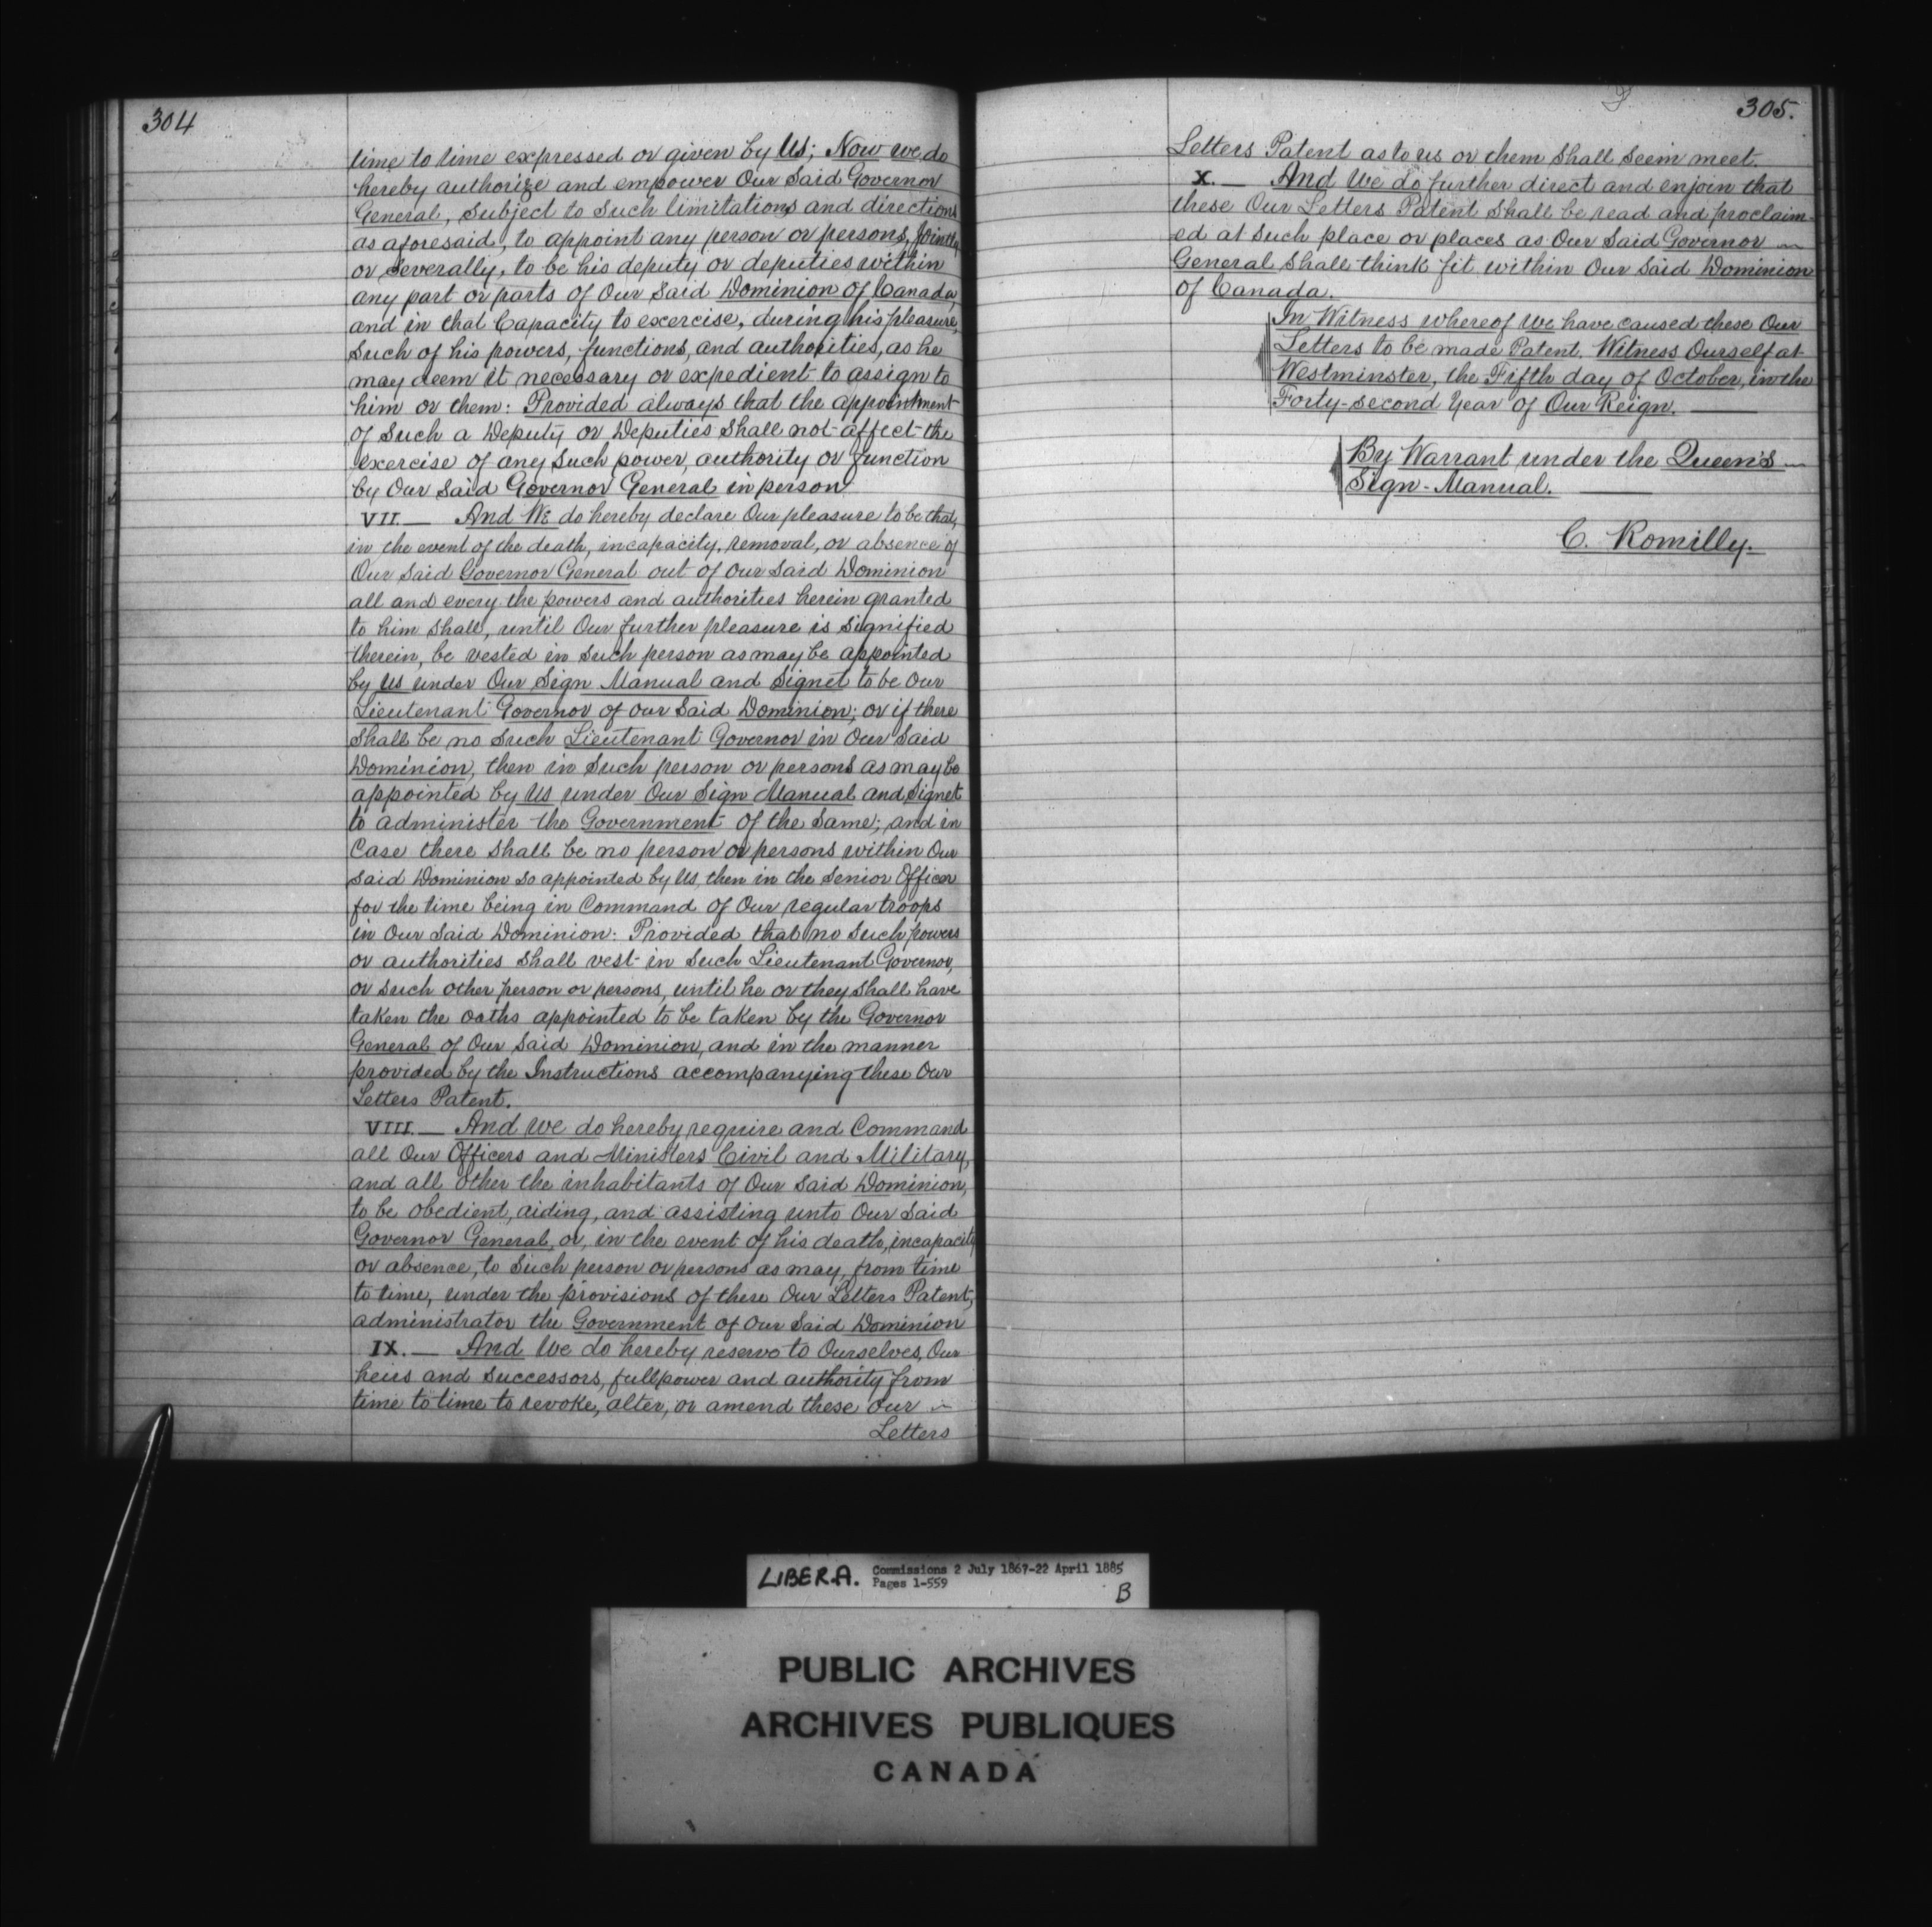 304
time to time expressed or given by Us; Now we do
hereby authorize and empower Our Said Governor
General, Subject to Such limitations and directions
as aforesaid, to appoint any person or persons, jointly
or Severally, to be his deputy or deputies within
any part or parts of Our Said Dominion of Canada,
and in that Capacity to exercise, during his pleasure,
Such of his powers, functions, and authorities, as he
may deem it necessary or expedient to assign to
him or them: Provided always that the appointment
of Such a Deputy or Deputies Shall not affect the
exercise of any Such power, authority or function
by Our Said Governor General in person.
VII. — And We do hereby declare Our pleasure to be that,
in the event of the death, incapacity, removal, or absence of
Our Said Governor General out of Our Said Dominion
all and every the powers and authorities herein granted
to him Shall, until Our further pleasure is Signified
therein, be vested in Such person as may be appointed
by Us under Our Sign Manual and Signet to be Our
Lieutenant Governor of our Said Dominion; or if there
Shall be no Such Lieutenant Governor in Our Said
Dominion, then in Such person or persons as may be
appointed by Us under Our Sign Manual and Signet
to administer the Government of the Same; and in
Case there Shall be no person or persons within Our
Said Dominion So appointed by Us, then in the Senior Officer
for the time being in Command of Our regular troops
in Our Said Dominion: Provided that no Such powers
or authorities Shall vest in Such Lieutenant Governor,
or Such other person or persons, until he or they Shall have
taken the oaths appointed to be taken by the Governor
General of Our Said Dominion, and in the manner
provided by the Instructions accompanying these Our
Letters Patent.
VIII. — And We do hereby require and Command
all Our Officers and Ministers Civil and Military,
and all other the inhabitants of Our Said Dominion,
to be obedient, aiding, and assisting unto Our Said
Governor General, or, in the event of his death, incapacity
or absence, to Such person or persons as may, from time
to time, under the provisions of these Our Letters Patent,
administrator the Government of Our Said Dominion
IX. — And We do hereby reserve to Ourselves, Our
heirs and Successors, full power and authority from
time to time to revoke, alter, or amend these Our
Letters
305.
Letters Patent as to us or them Shall Seem meet.
X. — And We do further direct and enjoin that
these Our Letters Patent Shall be read and proclaim-
ed at Such place or places as Our Said Governor
General Shall think fit within Our Said Dominion
of Canada.
In Witness whereof We have caused these Our
Letters to be made Patent. Witness Ourself at
Westminster, the Fifth day of October, in the
Forty-second Year of Our Reign. —
By Warrant under the Queen's
Sign-Manual. —
C. Romilly.
LIBER.A. Commissions 2 July 1867-22 April 1885
Pages 1-559
B
PUBLIC ARCHIVES
ARCHIVES PUBLIQUES
CANADA